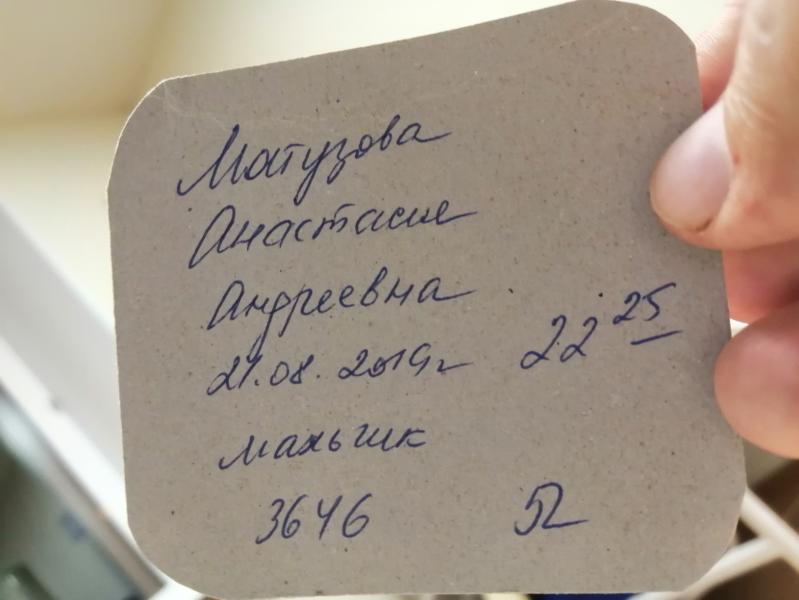 Матузова
Анастасия
Андреевна
21.08.2019г 22 25
мальчик
3646 52